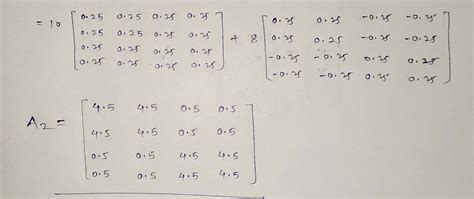 = 10 [ 0.25 0.25 0.25 0.25 ] + 8 [ 0.25 0.25 -0.25 -0.25 ]
0.25 0.25 0.25 0.25 0.25 0.25 -0.25 -0.25
0.25 0.25 0.25 0.25 -0.25 -0.25 0.25 0.25
0.25 0.25 0.25 0.25 -0.25 -0.25 0.25 0.25
A2 = [ 4.5 4.5 0.5 0.5 ]
4.5 4.5 0.5 0.5
0.5 0.5 4.5 4.5
0.5 0.5 4.5 4.5